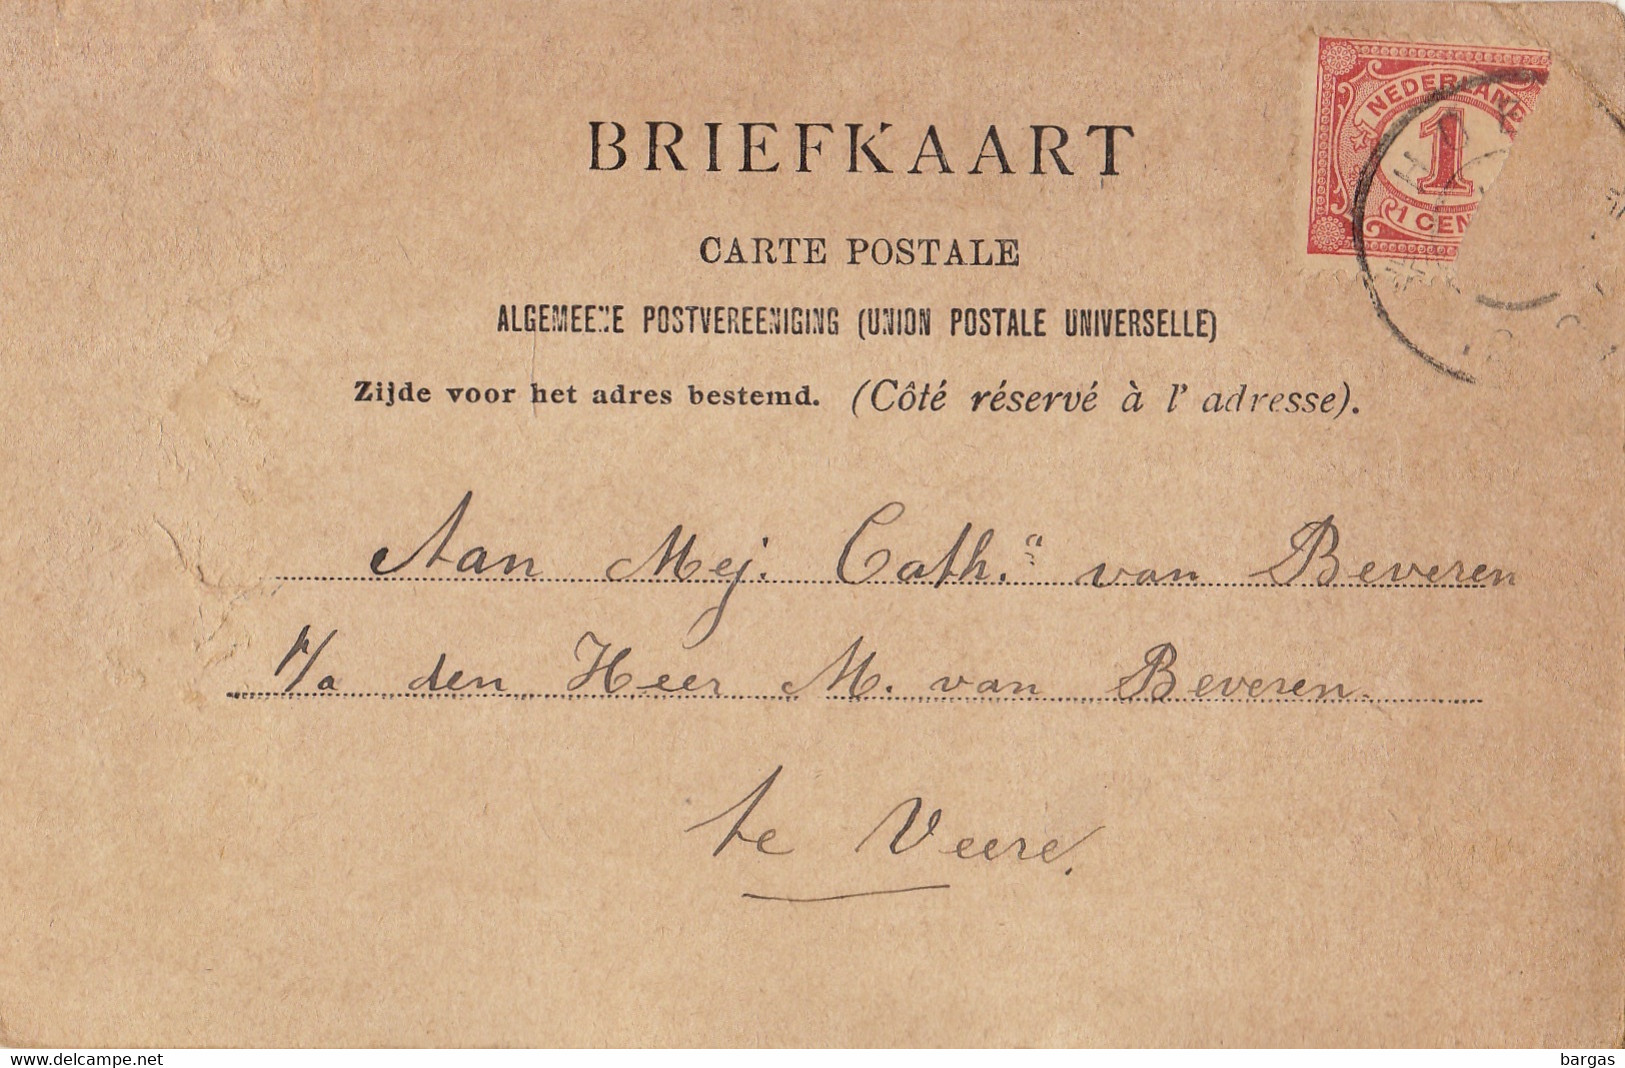 NEDERLAND
1
1 CEN
BRIEFKAART
CARTE POSTALE
ALGEMEENE POSTVEREENIGING (UNION POSTALE UNIVERSELLE)
Zijde voor het adres bestemd. (Côté réservé à l' adresse).
Aan Mej. Cath.a van Beveren
p/a den Heer M. van Beveren.
te Veere.
delcampe.net
bargas